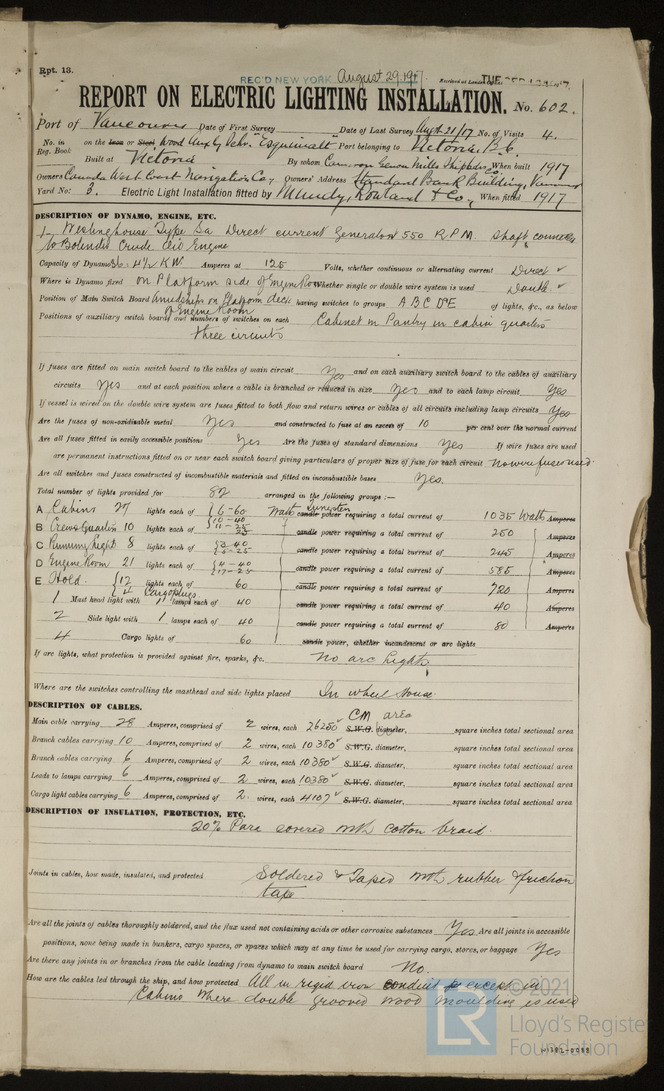 Rpt. 13.
REC'D NEW YORK August 29 1917 Received at London Office TUE
REPORT ON ELECTRIC LIGHTING INSTALLATION. No. 602.
Port of Vancouver Date of First Survey Date of Last Survey Augt 21/17 No. of Visits 4.
No. in Reg. Book on the Iron or Steel Wood Auxly Schr. "Esquimalt" Port belonging to Victoria, B.C.
Built at Victoria By whom Cameron Genoa Mills Shipbldrs Co. When built 1917
Owners Canada West Coast Navigation Co. Owners' Address Standard Bank Building, Vancouver
Yard No. 3. Electric Light Installation fitted by Mundy, Rowland & Co., When fitted 1917
DESCRIPTION OF DYNAMO, ENGINE, ETC.
1 – Westinghouse Type Sa Direct current generator 550 R P M shaft connected
to Bolinder Crude Oil Engine
Capacity of Dynamo 36 - 4 1/2 KW Amperes at 125 Volts, whether continuous or alternating current Direct
Where is Dynamo fixed on Platform side of Engine Room Whether single or double wire system is used Double
Position of Main Switch Board Amidships on Platform deck of Engine Room having switches to groups A B C D E of lights, &c., as below
Positions of auxiliary switch boards and numbers of switches on each Cabinet in Pantry in cabin quarters
three circuits
If fuses are fitted on main switch board to the cables of main circuit Yes and on each auxiliary switch board to the cables of auxiliary
circuits Yes and at each position where a cable is branched or reduced in size Yes and to each lamp circuit Yes
If vessel is wired on the double wire system are fuses fitted to both flow and return wires or cables of all circuits including lamp circuits Yes
Are the fuses of non-oxidizable metal Yes and constructed to fuse at an excess of 10 per cent over the normal current
Are all fuses fitted in easily accessible positions Yes Are the fuses of standard dimensions Yes If wire fuses are used
are permanent instructions fitted on or near each switch board giving particulars of proper size of fuse for each circuit no wire fuses used
Are all switches and fuses constructed of incombustible materials and fitted on incombustible bases Yes.
Total number of lights provided for 82 arranged in the following groups :—
A Cabins 27 lights each of 16-60 Watt Tungsten candle power requiring a total current of 1035 Watts Amperes
B Crews Quarters 10 lights each of 25 candle power requiring a total current of 250 Amperes
C Running Light 8 lights each of candle power requiring a total current of 245 Amperes
D Engine Room 21 lights each of 4-40 17-25 candle power requiring a total current of 585 Amperes
E Hold. 12 lights each of 60 candle power requiring a total current of 720 Amperes
1 Mast head light with 1 lamps each of 40 candle power requiring a total current of 40 Amperes
2 Side light with 1 lamps each of 40 candle power requiring a total current of 80 Amperes
4 Cargo lights of 60 candle power, whether incandescent or arc lights
If arc lights, what protection is provided against fire, sparks, &c. No arc lights
Where are the switches controlling the masthead and side lights placed In wheel House.
DESCRIPTION OF CABLES.
CM area
Main cable carrying 28 Amperes, comprised of 2 wires, each 26250 S.W.G. diameter, square inches total sectional area
Branch cables carrying 10 Amperes, comprised of 2 wires, each 10380 S.W.G. diameter, square inches total sectional area
Branch cables carrying 6 Amperes, comprised of 2 wires, each 10380 S.W.G. diameter, square inches total sectional area
Leads to lamps carrying 6 Amperes, comprised of 2 wires, each 10380 S.W.G. diameter, square inches total sectional area
Cargo light cables carrying 6 Amperes, comprised of 2 wires, each 4107 S.W.G. diameter, square inches total sectional area
DESCRIPTION OF INSULATION, PROTECTION, ETC.
20% Para covered with cotton braid.
Joints in cables, how made, insulated, and protected Soldered & Taped with rubber & friction
tape
Are all the joints of cables thoroughly soldered, and the flux used not containing acids or other corrosive substances Yes. Are all joints in accessible
positions, none being made in bunkers, cargo spaces, or spaces which may at any time be used for carrying cargo, stores, or baggage Yes
Are there any joints in or branches from the cable leading from dynamo to main switch board No.
How are the cables led through the ship, and how protected All in rigid iron conduit except in
Cabins where double grooved wood moulding is used
LR © 2021
Lloyd's Register
Foundation